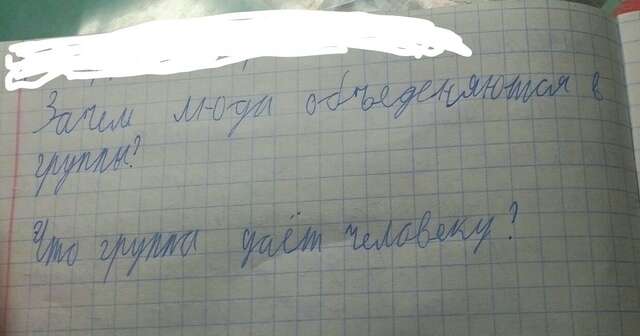 Зачем люди объеденяются в
группы?
Что группа даёт человеку?